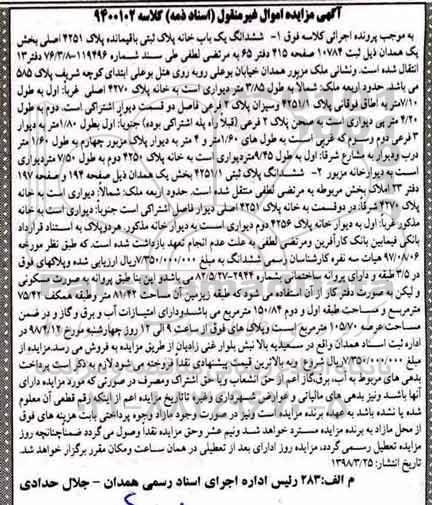 آگهی مزایده اموال غیرمنقول (اسناد ذمه) کلاسه ۹۴۰۰۱۰۲
به موجب پرونده اجرائی کلاسه فوق ۱- ششدانگ یک باب خانه پلاک ثبتی باقیمانده پلاک ۴۲۵۱ اصلی بخش
یک همدان ذیل ثبت ۱۰۷۸۴ صفحه ۴۱۵ دفتر ۶۵ به مرتضی لطفی طی سند شماره ۱۱۹۴۹۶-۷۶/۳/۸ دفتر ۱۳
انتقال شده است. ونشانی ملک مزبور همدان خیابان بوعلی روبه روی هتل بوعلی ابتدای کوچه شریف پلاک ۵۸۵
می باشد حدود اربعه ملک: شمالا به طول ۳/۸۵ متر دیواری است به خانه پلاک ۴۲۷۰ اصلی غربا: اول به طول
۷/۱۰متر به اطاق فوقانی پلاک ۴۲۵۱/۱ وسپزان پلاک ۲ فرعی فاصل دو قسمت دیوار اشتراکی است. دوم به طول
۴/۲۰ متری دیواری است به صحن پلاک ۲ فرعی (قبلا راه پله اشتراکی بوده) جنوبا: اول بطول ۱/۸۰متر به دیوار
۳ فرعی دوم وسوم که غربی است به طول های ۱/۶۰متر و ۴ متر به دیوار پلاک مزبور چهارم به طول ۱/۶۰ متر
درب ودیوار به مشارع شرقا: اول به طول ۹/۴۵متردیواری است به خانه پلاک ۴۲۵۰ دوم به طول ۷/۵۰ متردیواری
است به دیوارخانه مزبور ۲- ششدانگ پلاک ثبتی ۴۲۵۱/۱ بخش یک همدان ذیل صفحه ۱۹۴ و صفحه ۱۹۷
دفتر ۲۳ املاک بخش مربوطه به مرتضی لطفی منتقل شده است. حدود اربعه ملک: شمالا: دیواری است به خانه
پلاک ۴۲۷۰ شرقا: در دوقسمت به خانه پلاک ۴۲۵۱ اصلی دیوار فاصل اشتراکی است جنوبا: دیواری است به خانه
مذکور غربا: اول به دیوار خانه پلاک ۴۲۵۶ دوم دیواری است به دیوار خانه مذکور. هردوپلاک به استناد قرارداد
بانکی فیمابین بانک کارآفرین ومرتضی لطفی به علت عدم انجام تعهد بازداشت شده است. که طبق نظر مورخه
۹۷/۰۸/۰۶ هیات سه نفره کارشناسان رسمی ششدانگ به مبلغ ۷/۳۵۰/۰۰۰/۰۰۰ریال ارزیابی شده وپلاکهای فوق
در ۳/۵ طبقه و دارای پروانه ساختمانی بشماره ۲۹۴۴-۸۲/۵/۲۷ می باشدو این بنا طبق پروانه به صورت مسکونی
و لیکن به صورت دفتر کار از آن استفاده می شود که طبقه زیرزمین آن مساحت ۸۱/۴۲ متر وطبقه همکف ۷۵/۴۲
مترمربع و مساحت طبقه اول و دوم ۱۵۰/۸۴ مترمربع می باشدودارای امتیازات آب و برق و گاز و در ضمن
مساحت عرصه ۱۰۵/۷۰ مترمربع است وپلاک های فوق از ساعت ۹ الی ۱۲ روز چهارشنبه مورخ ۹۸/۴/۱۲ در
اداره ثبت اسناد همدان واقع در سعیدیه بالا نبش بلوار غنی زادیان از طریق مزایده به فروش می رسد.مزایده از
مبلغ ۷/۳۵۰/۰۰۰/۰۰۰ ریال شروع وبه بالاترین قیمت پیشنهادی نقدا فروخته می شود لازم به ذکر است پرداخت
بدهی های مربوط به آب، برق،گاز اعم از حق انشعاب ویا حق اشتراک ومصرف در صورتی که مورد مزایده دارای
آنها باشد ونیز بدهی های مالیاتی و عوارض شهرداری وغیره تاتاریخ مزایده اعم از اینکه رقم قطعی آن معلوم
شده یا نشده باشد به عهده برنده مزایده است ونیز در صورت وجود مازاد وجوه پرداختی بابت هزینه های فوق
از محل مازاد به برنده مزایده مسترد خواهد شد ونیم عشر وحق مزایده نقدا وصول می گردد ضمناچنانچه روز
مزایده تعطیل رسمی گردد، مزایده روز اداری بعد از تعطیلی در همان ساعت ومکان مقرر برگزار خواهد شد.
تاریخ انتشار: ۱۳۹۸/۳/۲۵
م الف:۲۸۳ رئیس اداره اجرای اسناد رسمی همدان - جلال حدادی